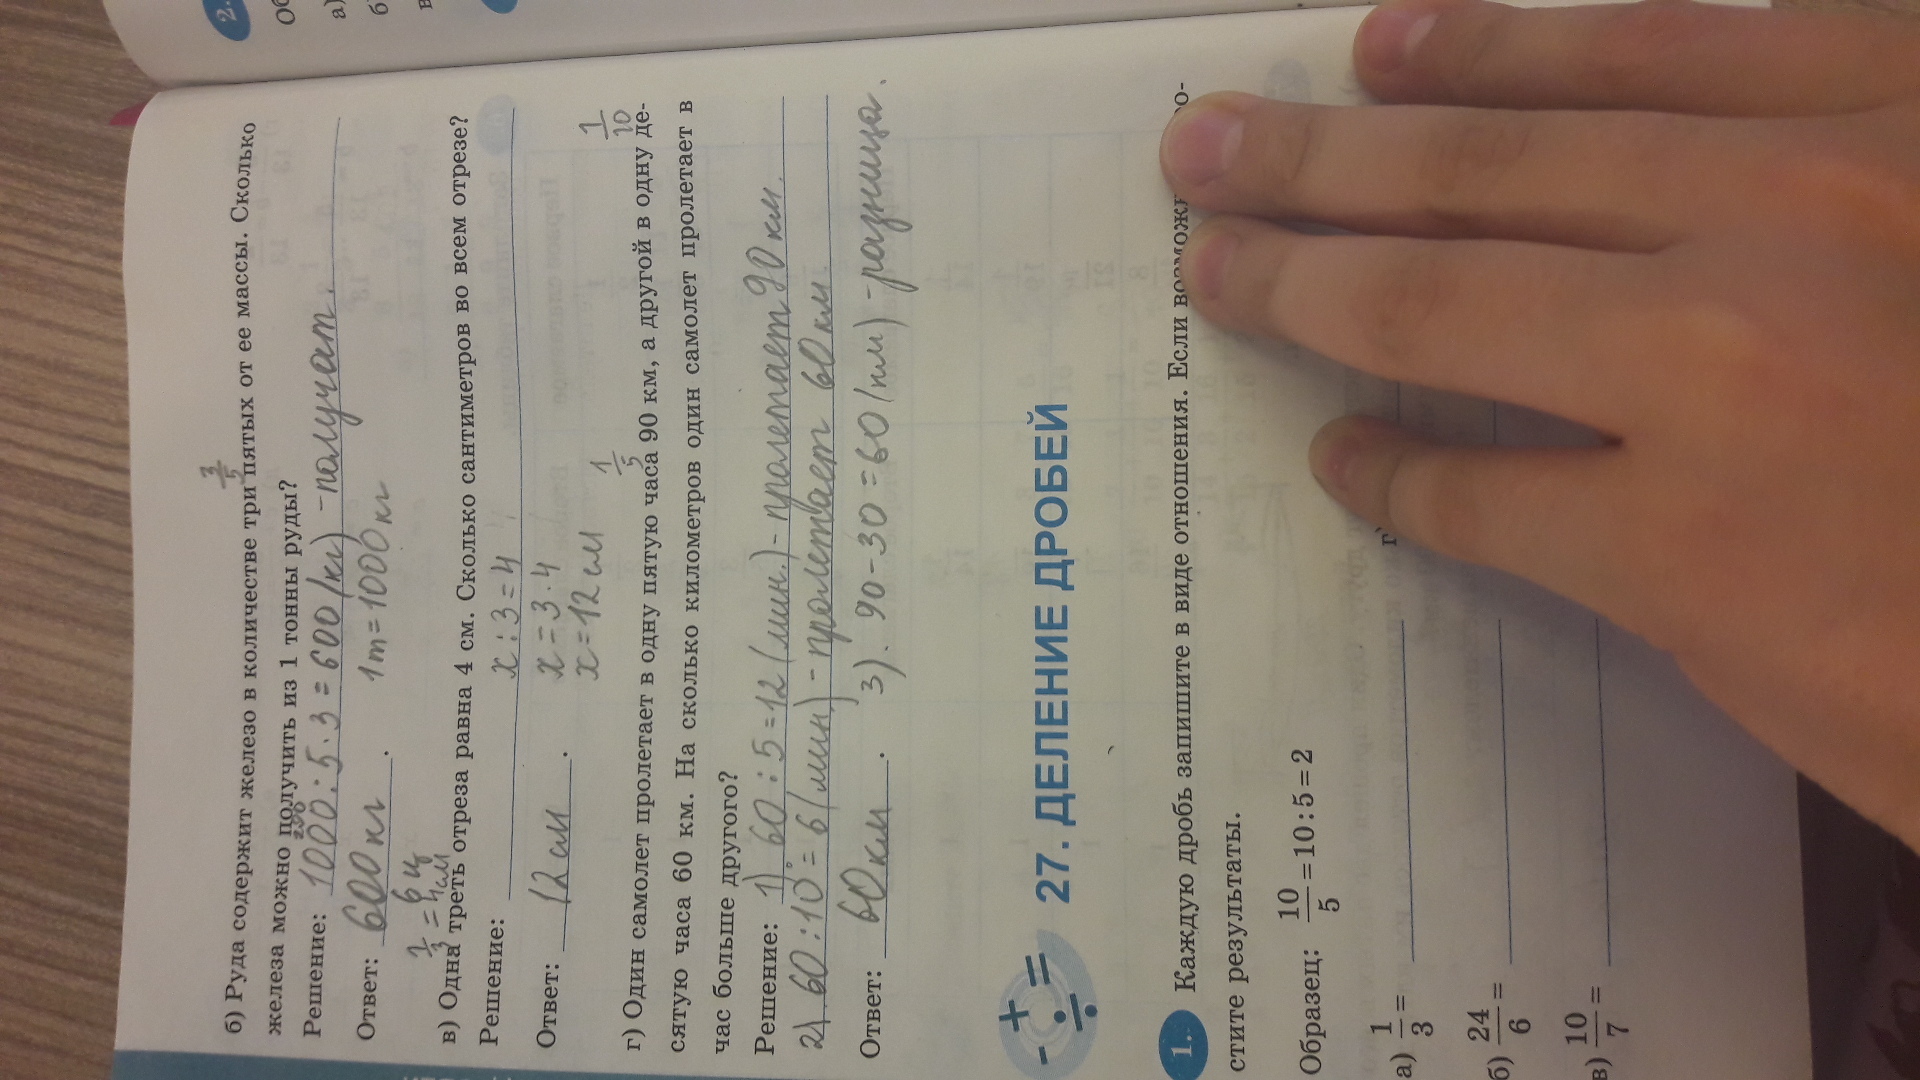 2.
а)
б
в
3/5
б) Руда содержит железо в количестве три пятых от ее массы. Сколько
железа можно получить из 1 тонны руды?
Решение: 1000 : 5 · 3 = 600 (кг) - получат.
Ответ: 600 кг. 1т = 1000 кг
в) Одна треть отреза равна 4 см. Сколько сантиметров во всем отрезе?
Решение: x : 3 = 4
x = 3 · 4
Ответ: 12 см. x = 12 см
1/5 1/10
г) Один самолет пролетает в одну пятую часа 90 км, а другой в одну де-
сятую часа 60 км. На сколько километров один самолет пролетает в
час больше другого?
Решение: 1) 60 : 5 = 12 (мин.) - пролетает 90 км.
2) 60 : 10 = 6 (мин) - пролетвает 60 км.
Ответ: 60 км. 3). 90 - 30 = 60 (км) - разница.
27. ДЕЛЕНИЕ ДРОБЕЙ
1. Каждую дробь запишите в виде отношения. Если
стите результаты.
Образец: 10/5 = 10 : 5 = 2
а) 1/3 =
г)
б) 24/6 =
в) 10/7 =